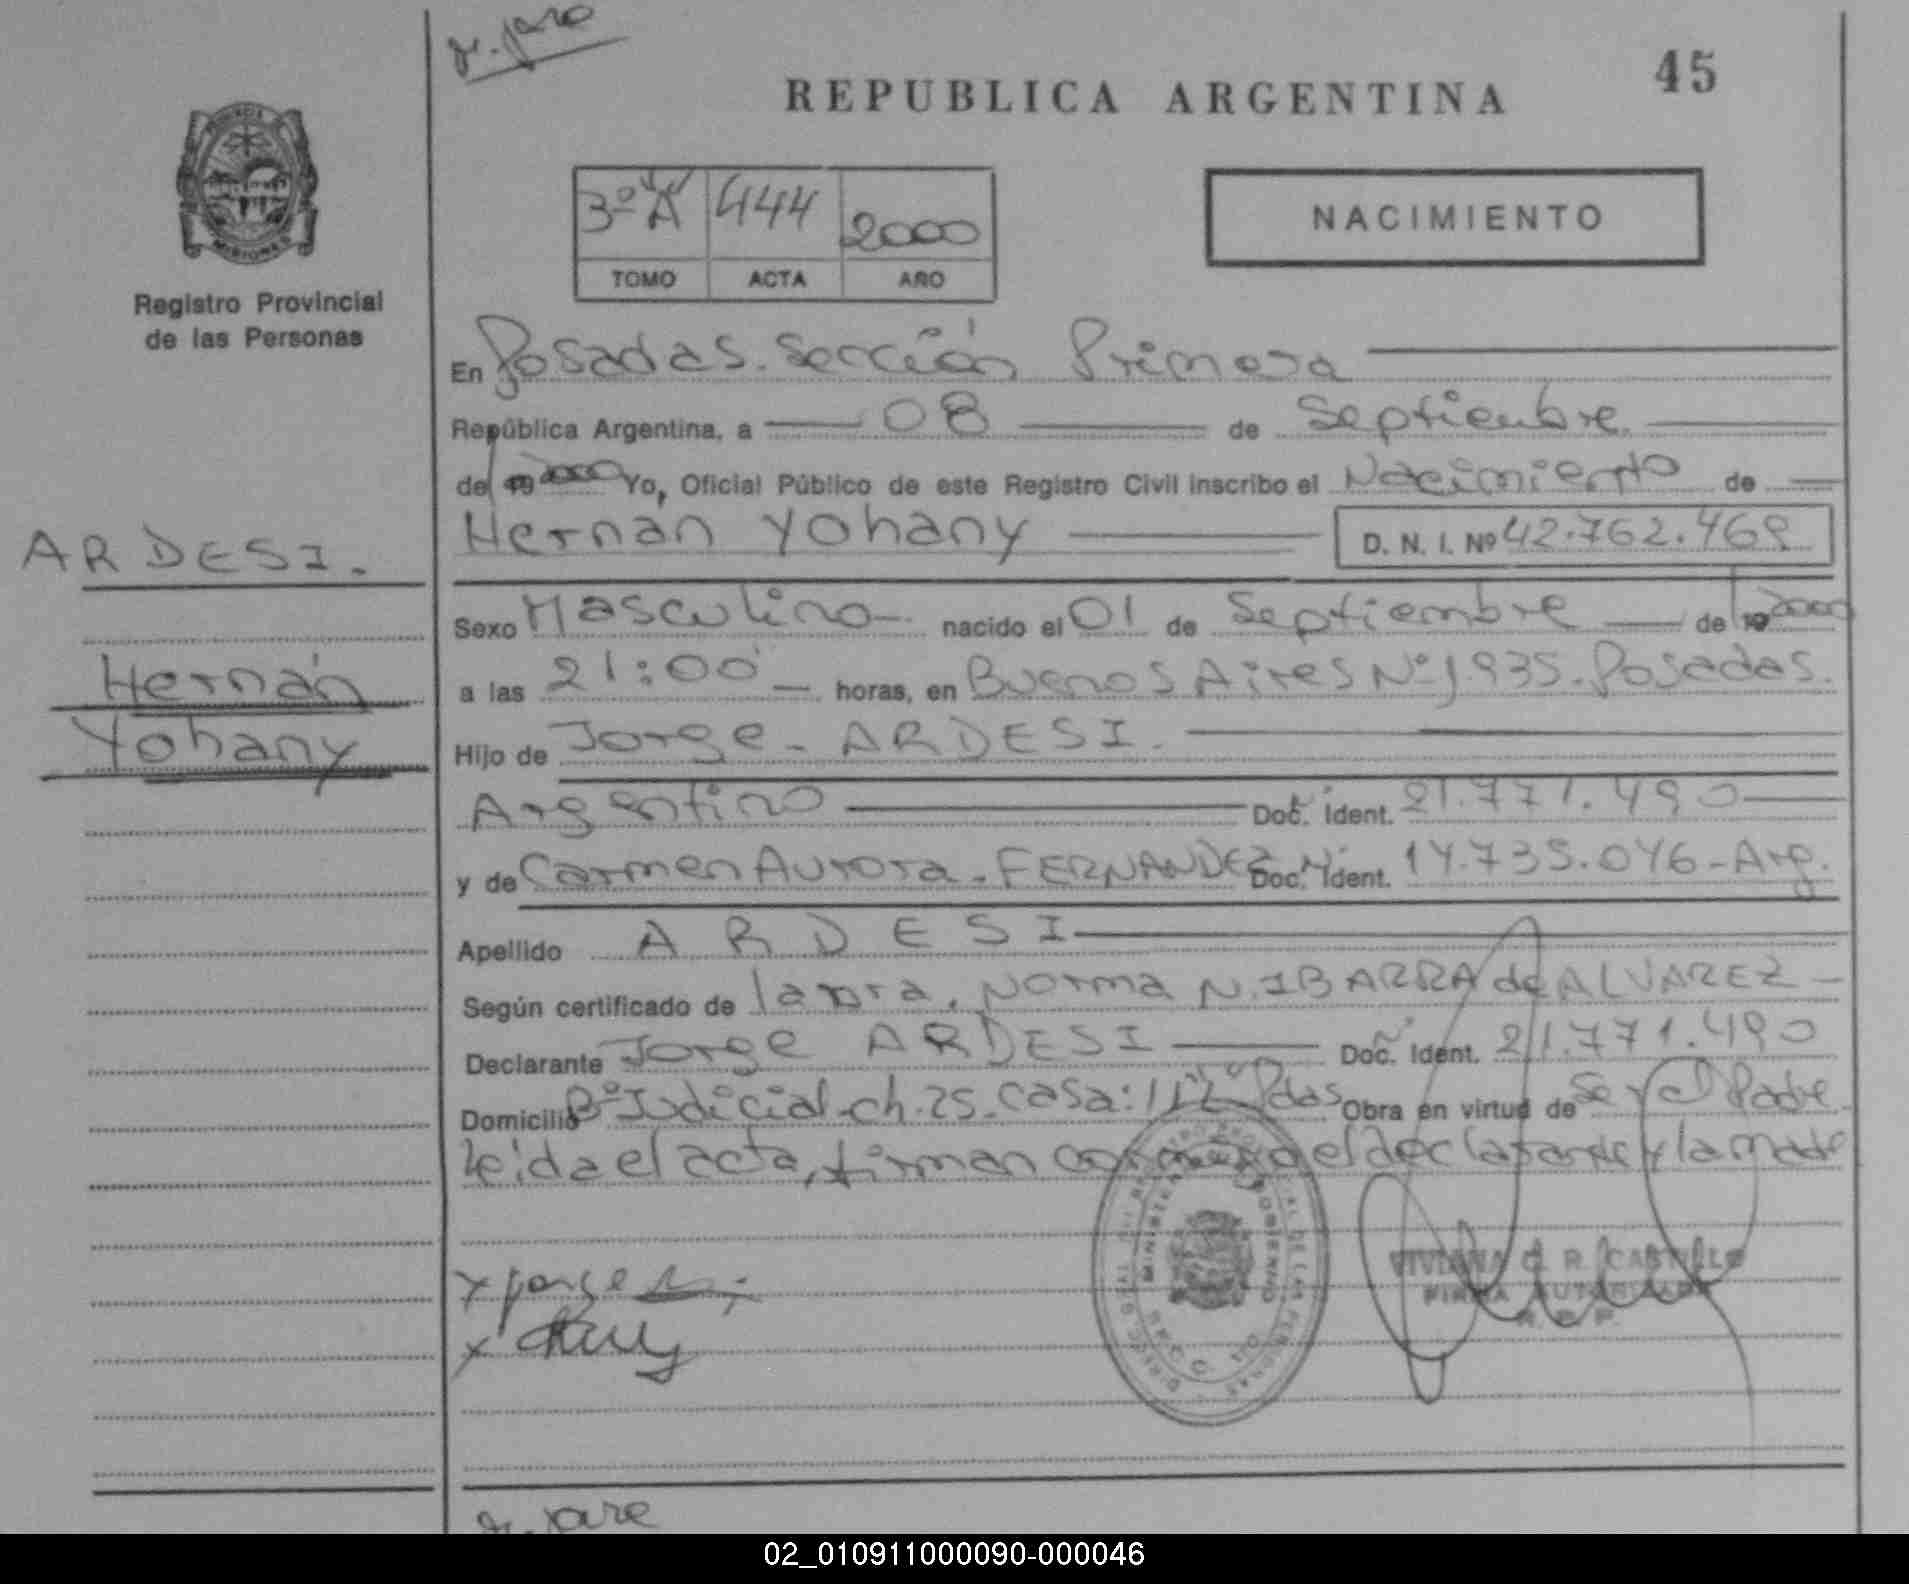 REPUBLICA ARGENTINA
45
PROVINCIA
MISIONES
Registro Provincial
de las Personas
3º "A" 444 2000
TOMO ACTA AÑO
NACIMIENTO
En Posadas. Sección Primera
República Argentina, a 08 de Septiembre
de 2000 Yo, Oficial Público de este Registro Civil inscribo el Nacimiento de
Hernán Yohany D. N. I. Nº 42.762.469
ARDESI.
Hernán
Yohany
Sexo Masculino nacido el 01 de Septiembre de 2000
a las 21:00 horas, en Buenos Aires Nº 1.935. Posadas.
Hijo de Jorge - ARDESI.
Argentino Doc. Ident. 21.771.490
y de Carmen Aurora. FERNANDEZ Doc. Ident. 14.735.046 - Arg.
Apellido ARDESI
Según certificado de Norma N. IBARRA de ALVAREZ
Declarante Jorge ARDESI Doc. Ident. 21.771.490
Domicilio Bº Judicial - ch. 25. Casa: 112 Pdas Obra en virtud de Ser el Padre
leida el acta, firman conmigo el declarante y la madre
x Jorge
x
VIVIANA C. R. CASTILLO
FIRMA AUTORIZADA
R. P. P.
02_010911000090-000046